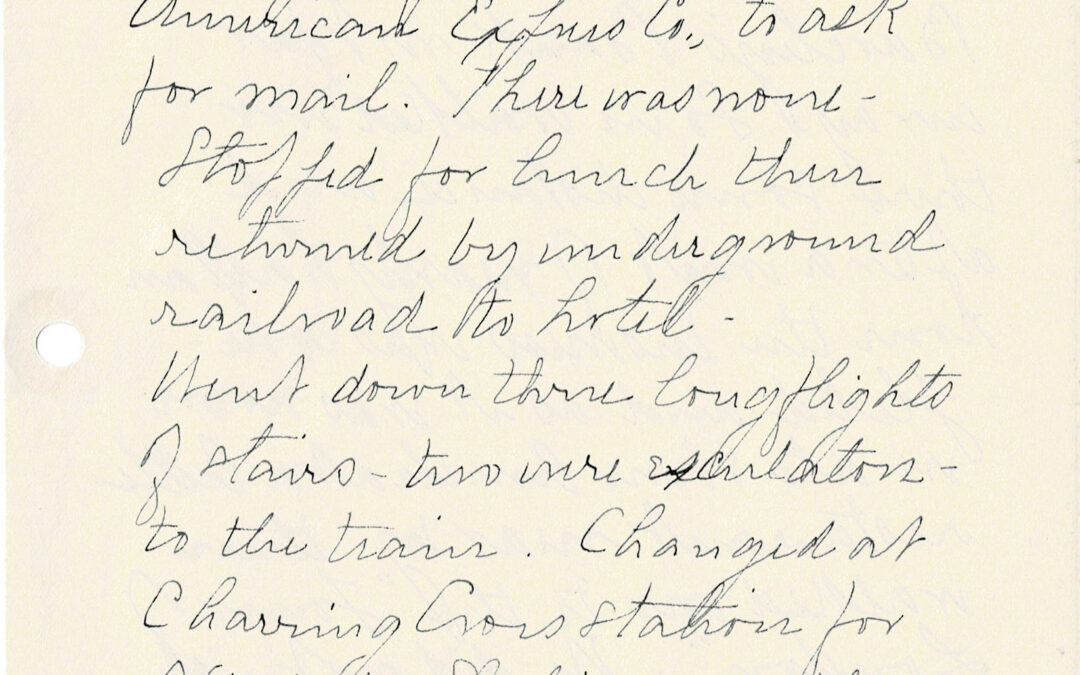 American Express Co., to ask
for mail. There was none -
Stopped for lunch then
returned by underground
railroad to hotel -
Went down three long flights
of stairs - two were esculators -
to the train. Changed at
Charring Cross station for